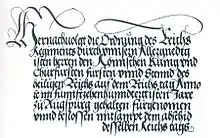 Hernachvolgt die Ordnung des Reichs
Regiments durch unsern Allergnedig
isten herrn den Römischen Kunig und
Churfursten fürsten unnd Stennd des
heiligen Reichs auf dem Reichs tag Anno
im funfftzehenhundertisten Jare
zu Augspurg gehalten fürgenomen
unnd beslossen mitsampt dem abschid
desselben Reichs tags